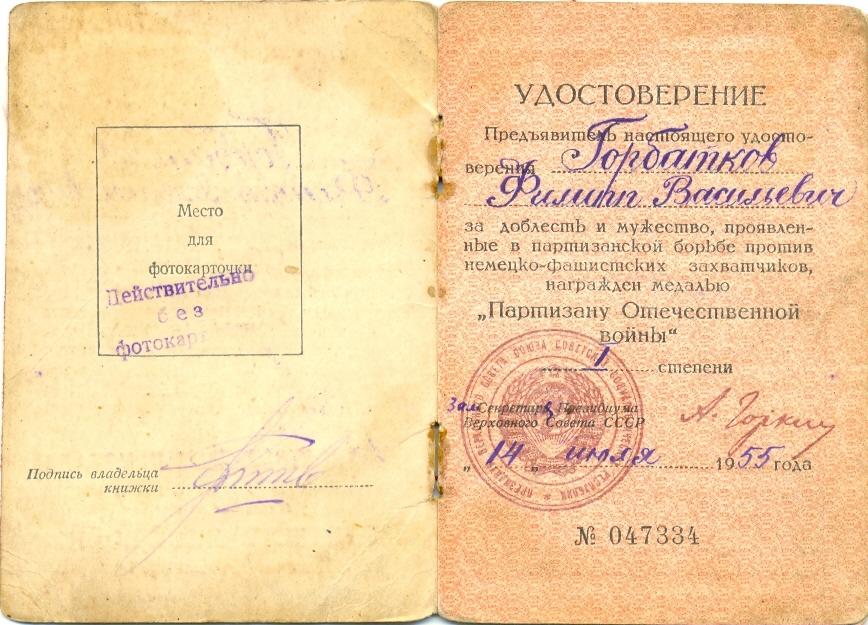 Место
для
фотокарточки
Действительно
без
фотокар
Подпись владельца
книжки
УДОСТОВЕРЕНИЕ
Предъявитель настоящего удосто-
верения Горбатков
Филипп Васильевич
за доблесть и мужество, проявлен-
ные в партизанской борьбе против
немецко-фашистских захватчиков,
награжден медалью
„Партизану Отечественной
войны“
I степени
Зам. Секретарь Президиума
Верховного Совета СССР А. Горкин
„14„ июля 1955 года
№ 047334